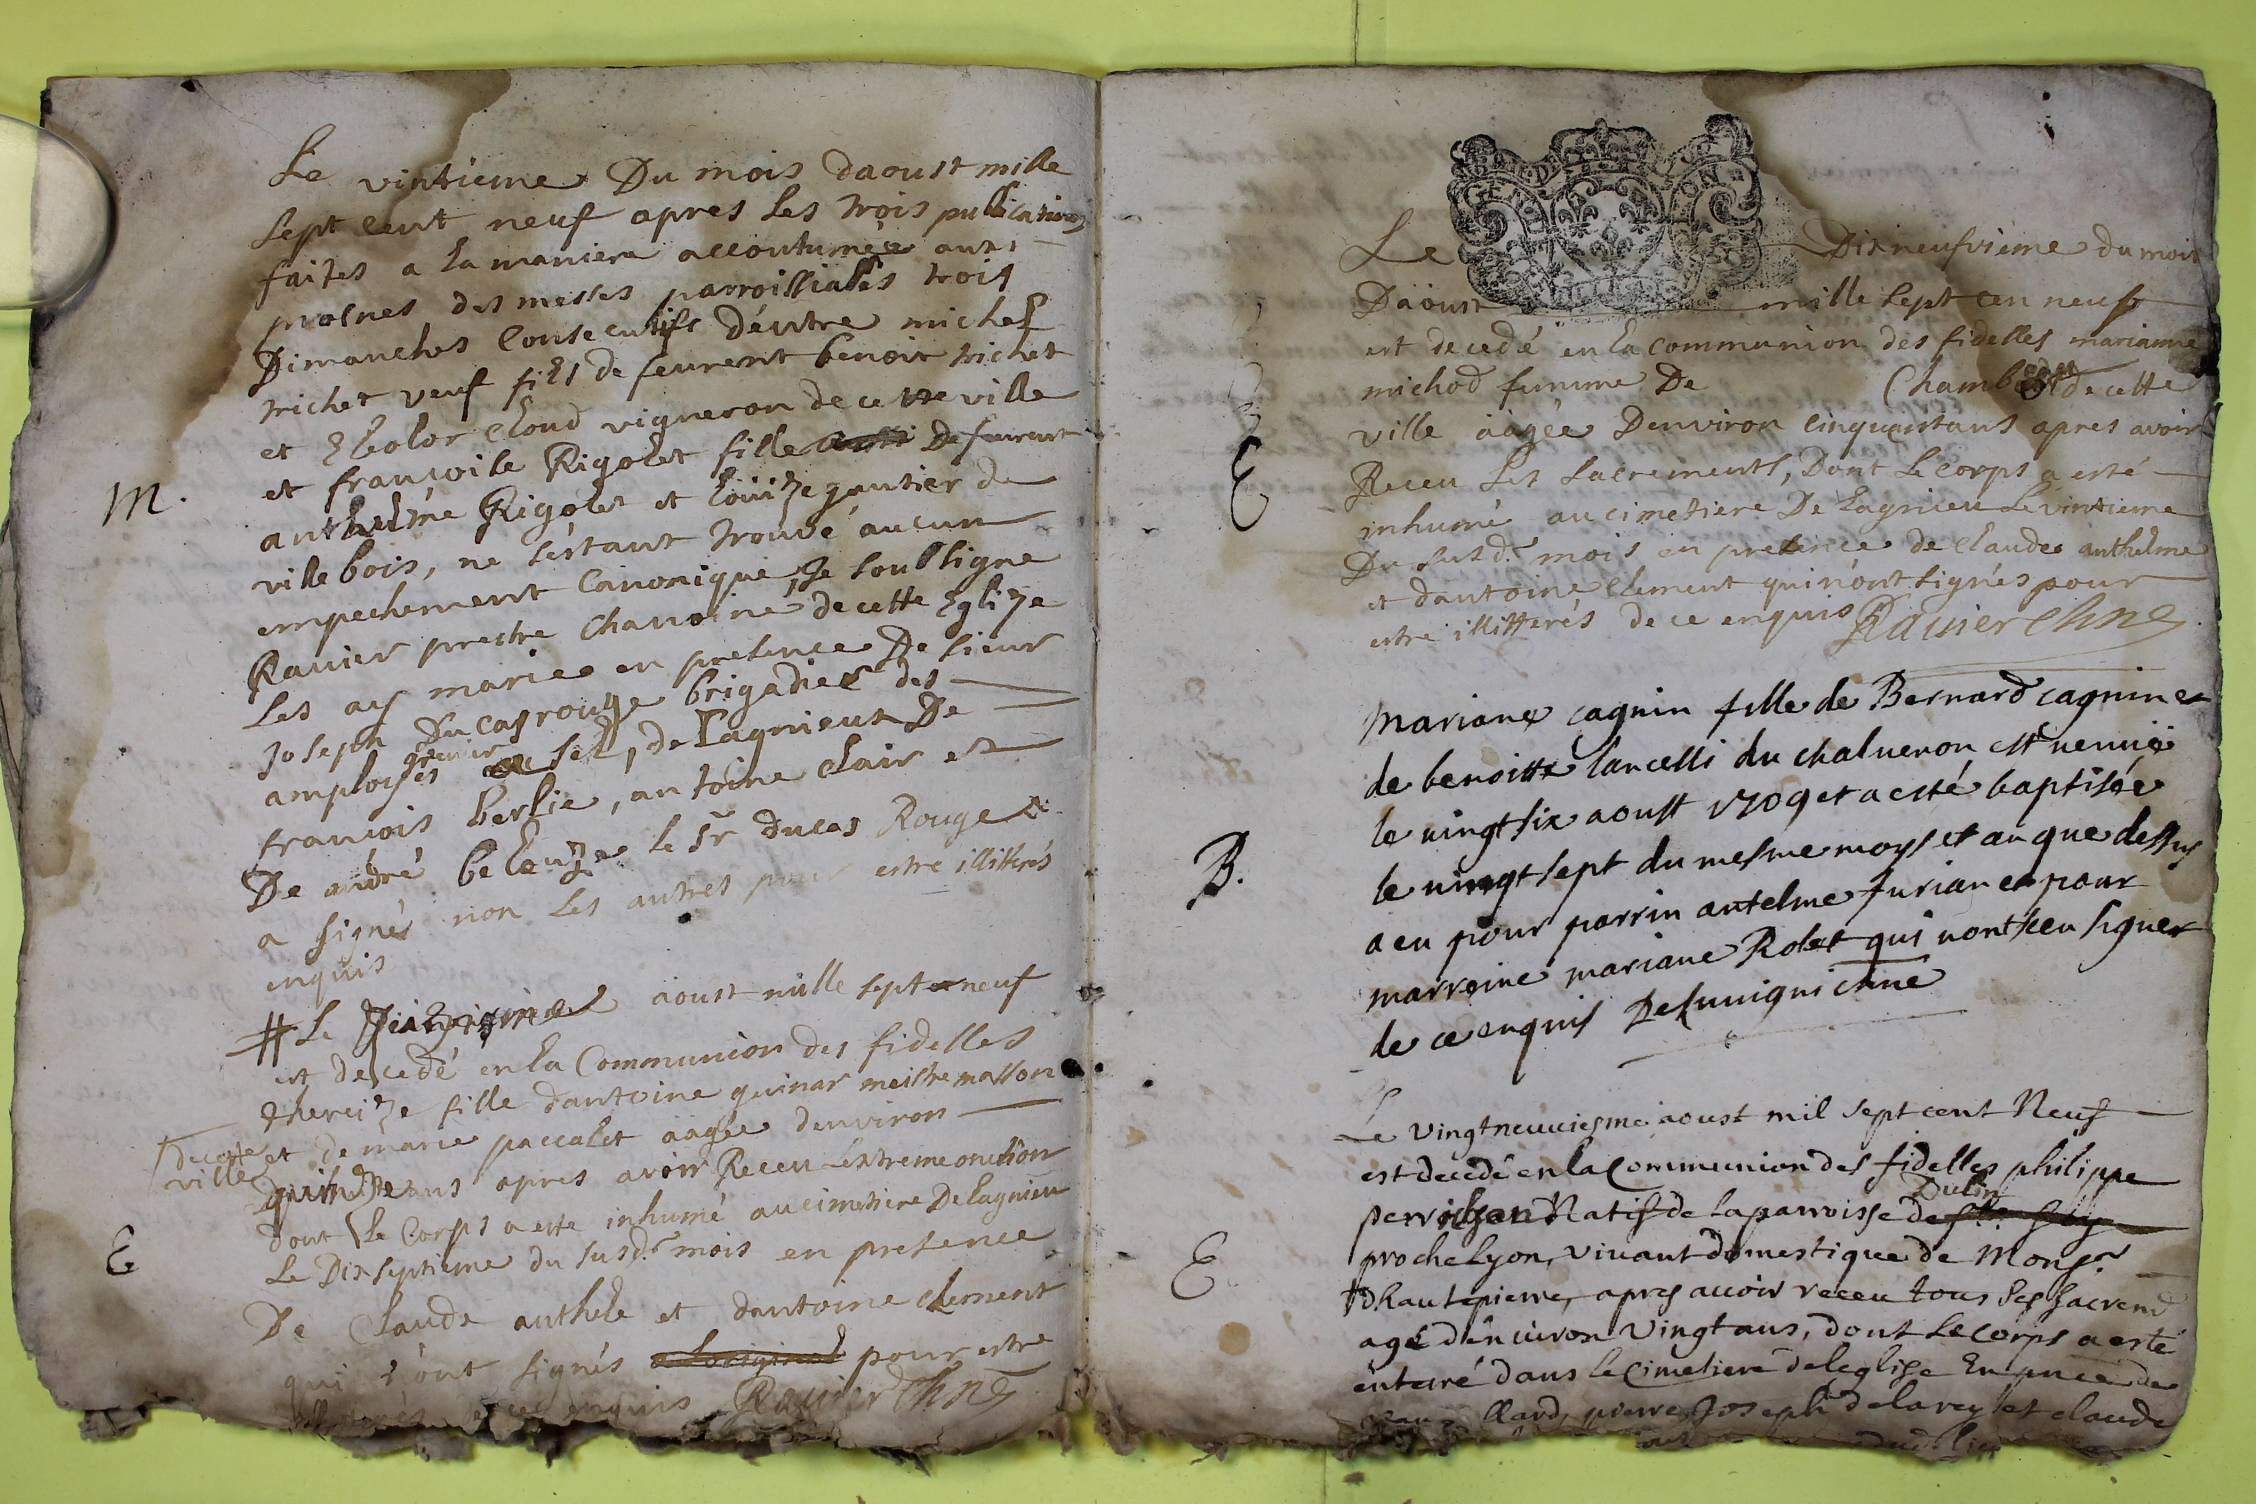 Le vintieme Du mois daoust mille
sept cent neuf apres les trois publications
faites a la maniere accoutumée aux
prosnes des messes parroissiales trois
Dimanches consecutifs d'entre michel
trichet veuf fils de feurent benoit trichet
et cloud vigneron de cette ville
et francoise Rigolet fille Defeurent
anthelme Rigolet et gautier de
M.
ville bois, ne s'estant trouvé aucun
empechement Canonique, Je soubsigne
Ravier prestre chanoine de cette Eglize
les ay marie en presence De sieur
Joseph Ducasrouge brigadier des
amployés grenier sel, de Lagnieux De
francois berlie, antoine clair et
De andré le Sr ducas Rouge
a signé non les autres pour estre illiterés
enquis
# Le aoust mille sept neuf
est decedé en la Communion des fidelles
fille dantoine quinar meistre masson
et de marie paccalet aagée denviron
de cette
ville
quinze ans apres avoir Receu lextreme onction
dont le Corps a esté inhumé au cimetiere De lagnieu
E
Le Dixseptieme du susd.t mois en presence
De Claude anthel et dantoine clement
qui n'ont signés a loriginal pour estre
enquis Ravier Chne
Le Dixneufvieme du mois
Daoust mille sept cen neuf
est decedé en la communion des fidelles marianne
michod femme De Chamb de cette
ville aagée Denviron cinquantans apres avoir
E
Receu les sacrements, Dont le corps a esté
inhumé au cimetiere De Lagnieu Le vintieme
Du susd.t mois en presence de Claude anthelme
et dantoine clement qui n'ont signés pour
estre illitterés de ce enquis Ravier Chne
Mariane cagnin fille de Bernard cagnin et
de benoitte lancelli du chalveron est venuë
le vingt six aoust 1709 et a esté baptisée
B.
le vingt sept du mesme moys et an que dessus
a eu pour parrin antelme furian et pour
marreine mariane Rolet qui nont sceu signer
de ce enquis chne
Le vingtneuviesme aoust mil sept cent Neuf
est decedé en la Communion des fidelles philippe
Natif de la parroisse de Dulin
proche Lyon, vivant domestique de Monsr.
E
dhautepierre, apres avoir receu tous Ses Sacremt
agé denviron Vingt ans, dont le corps a esté
enterré dans le Cimetiere de leglise En de
pierre Joseph delarey et claude